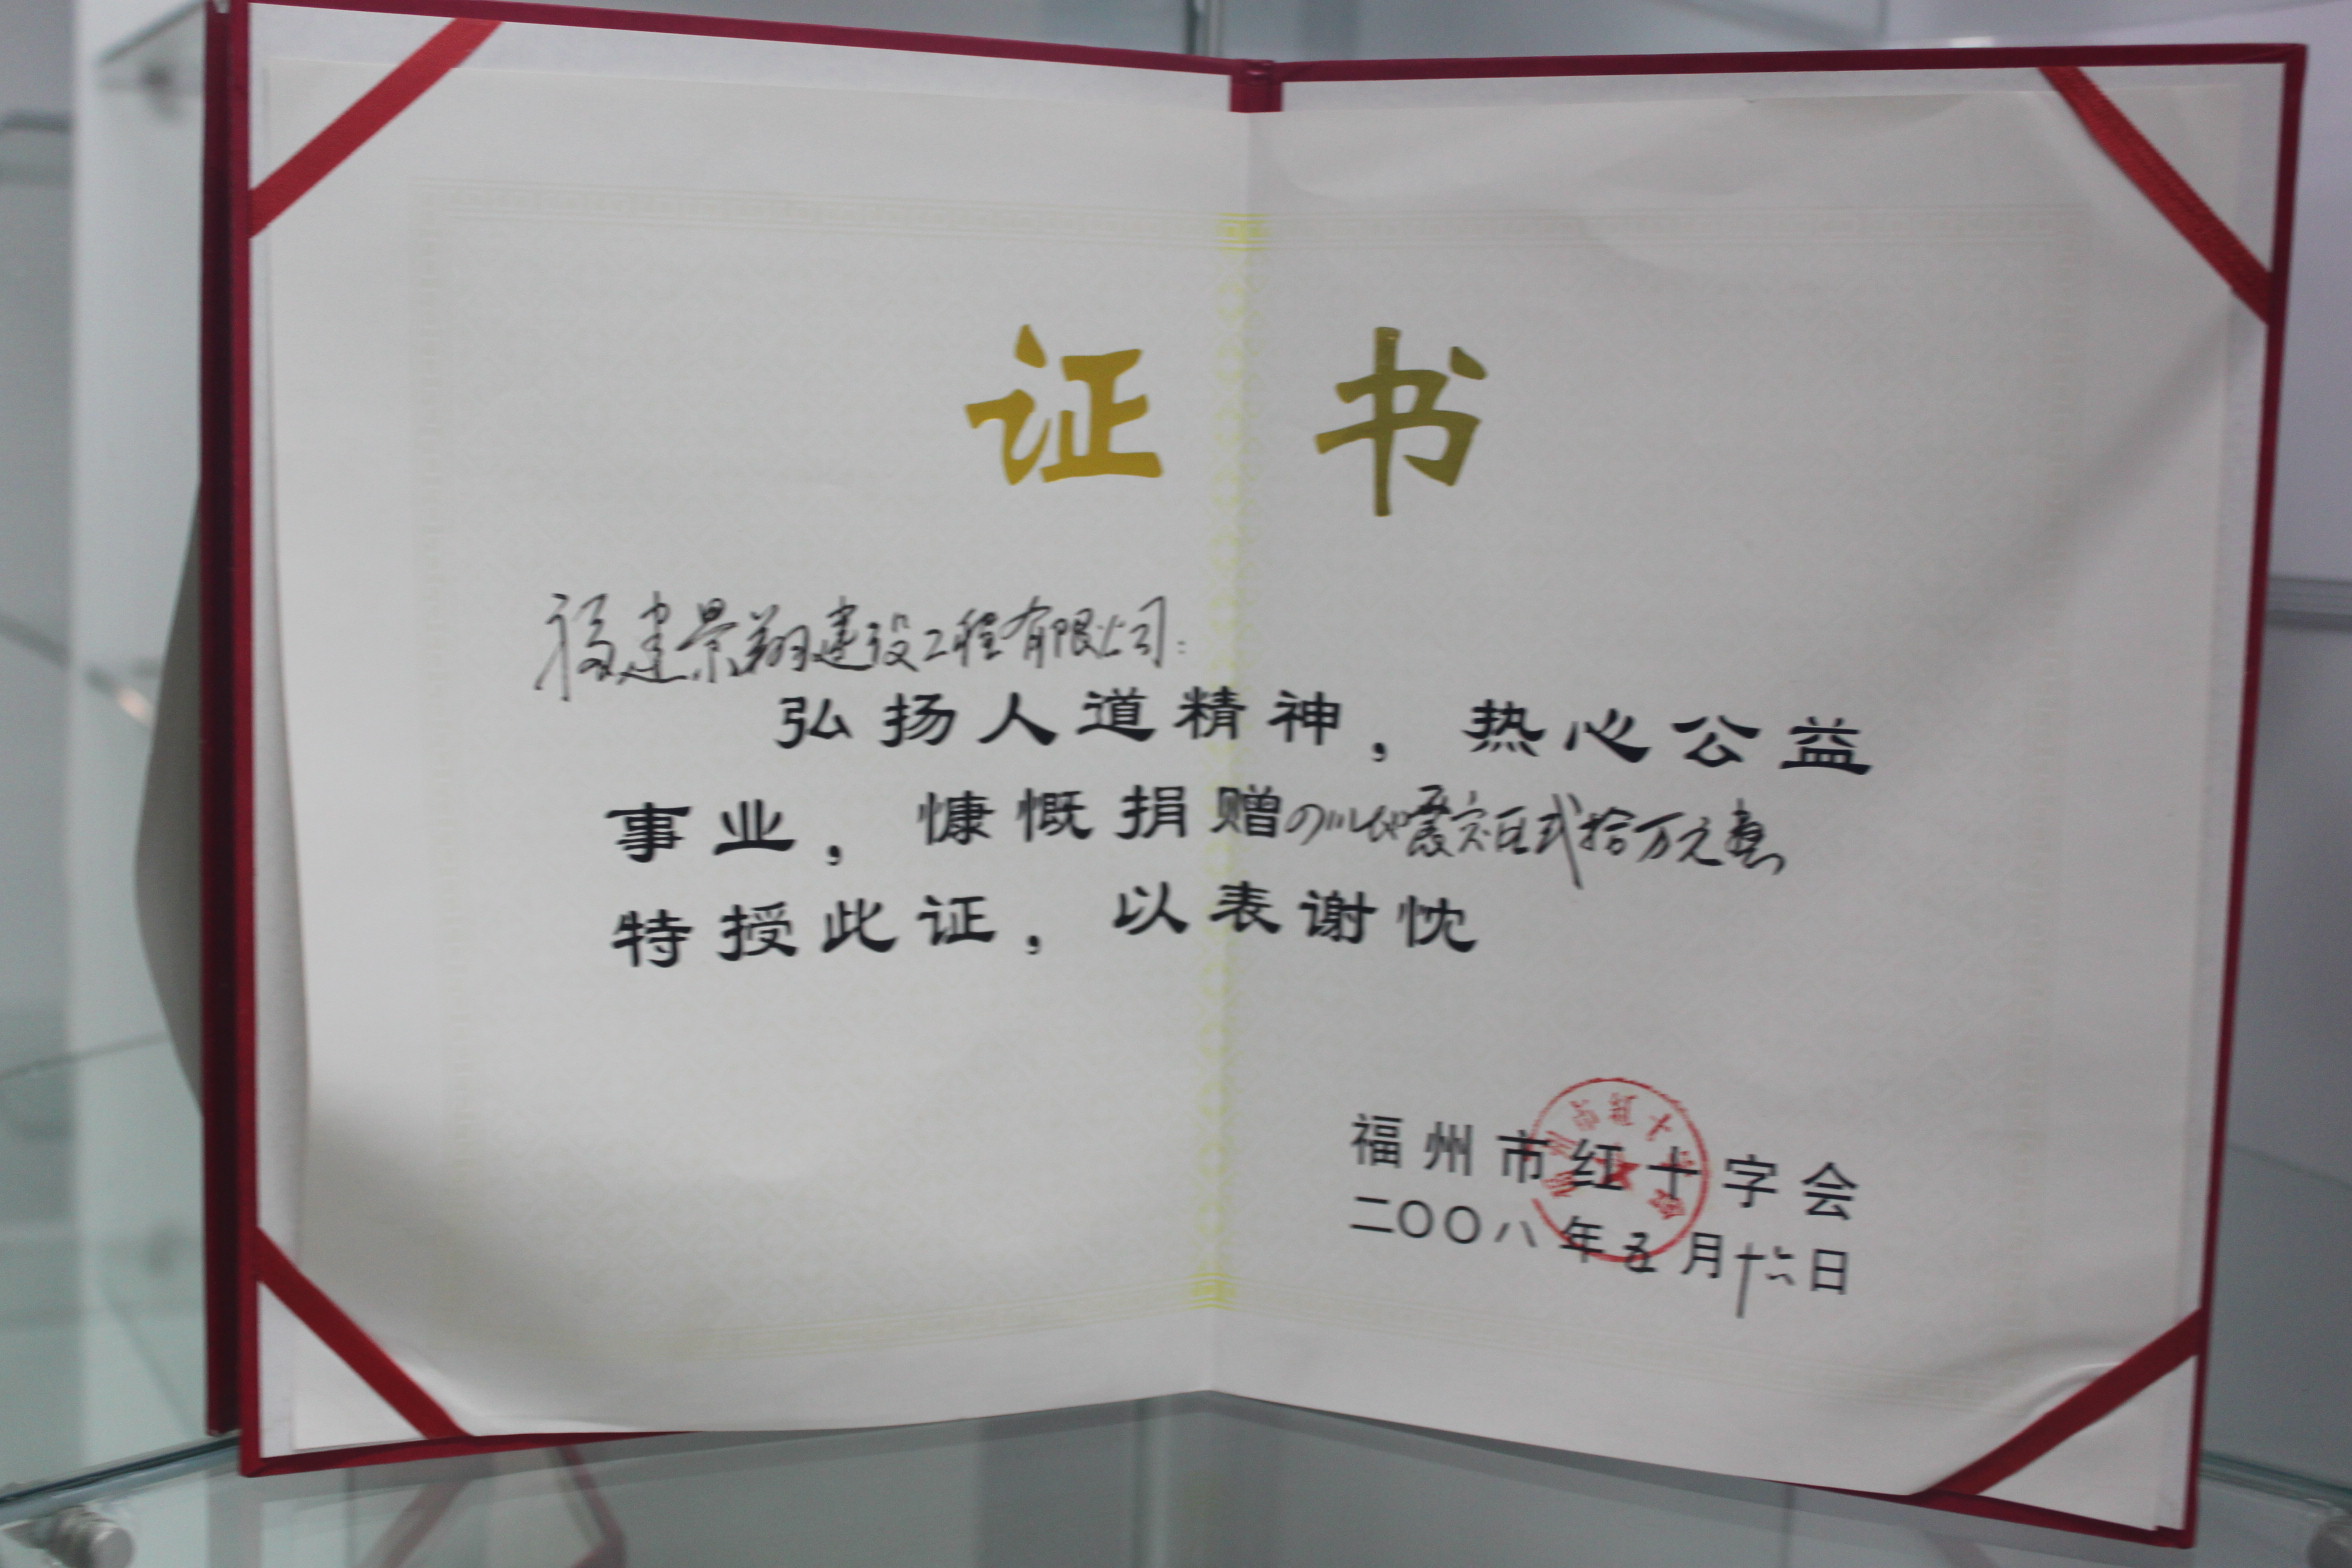 证书
福建景翔建设工程有限公司：
弘扬人道精神，热心公益
事业，慷慨捐赠四川地震灾区贰拾万元整
特授此证，以表谢忱
福州市红十字会
二〇〇八年五月十六日
福州市红十字会